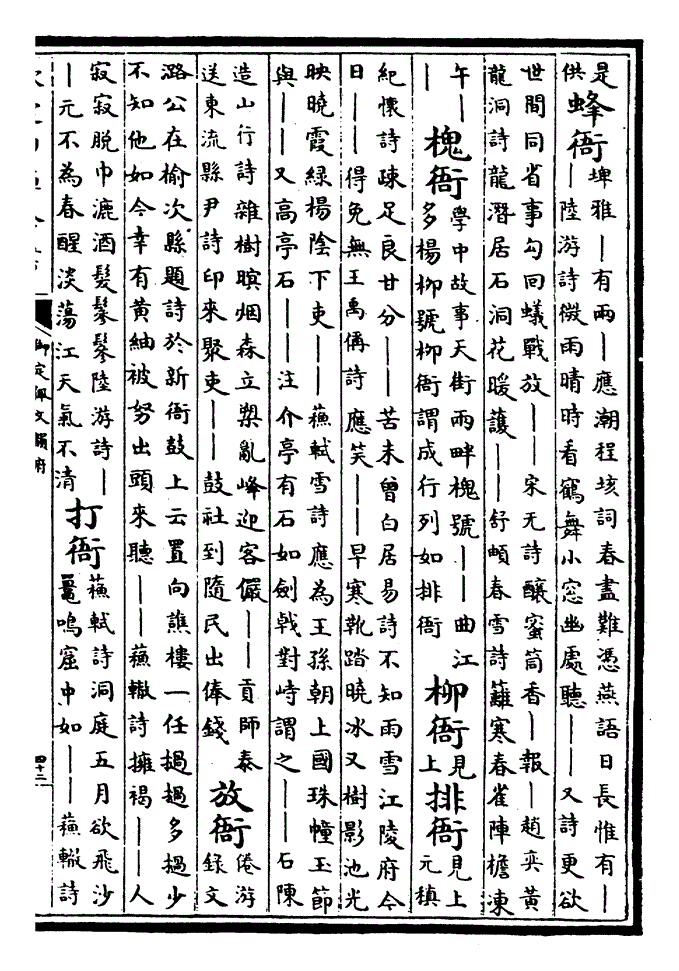 是
供
蜂衙
埤雅｜有兩｜應潮程垓詞春盡難憑燕語日長惟有｜
｜陸游詩微雨晴時看鶴舞小窓幽處聽｜｜又詩更欲
世間同省事勾回蟻戰放｜｜宋无詩釀蜜筒香｜報｜趙奕黃
龍洞詩龍潛居石洞花暖護｜｜舒頔春雪詩蘺寒春雀陣檐凍
午｜
｜
槐衙
學中故事天街兩畔槐號｜｜曲江
多楊柳號柳衙謂成行列如排衙
柳衙
見
上
排衙
見上
元稹
紀懷詩疎足良甘分｜｜苦未曾白居易詩不知雨雪江陵府今
日｜｜得免無王禹偁詩應笑｜｜早寒靴踏曉冰又樹影池光
映曉霞綠楊陰下吏｜｜蘓軾雪詩應為王孫朝上國珠幢玉節
與｜｜又高亭石｜｜注介亭有石如劍戟對峙謂之｜｜石陳
造山行詩雜樹暝烟森立槊亂峰迎客儼｜｜貢師泰
送東流縣尹詩印來聚吏｜｜鼓社到隨民出俸錢
放衙
倦游
錄文
潞公在榆次縣題詩於新衙鼓上云置向譙樓一任撾撾多撾少
不知他如今幸有黃紬被努出頭來聽｜｜蘓轍詩擁褐｜｜人
寂寂脫巾漉酒髮鬖鬖陸游詩｜
｜元不為春醒淡蕩江天氣不清
打衙
蘓軾詩洞庭五月欲飛沙
鼉鳴窟中如｜｜蘓轍詩
御定佩文韻府
四十三